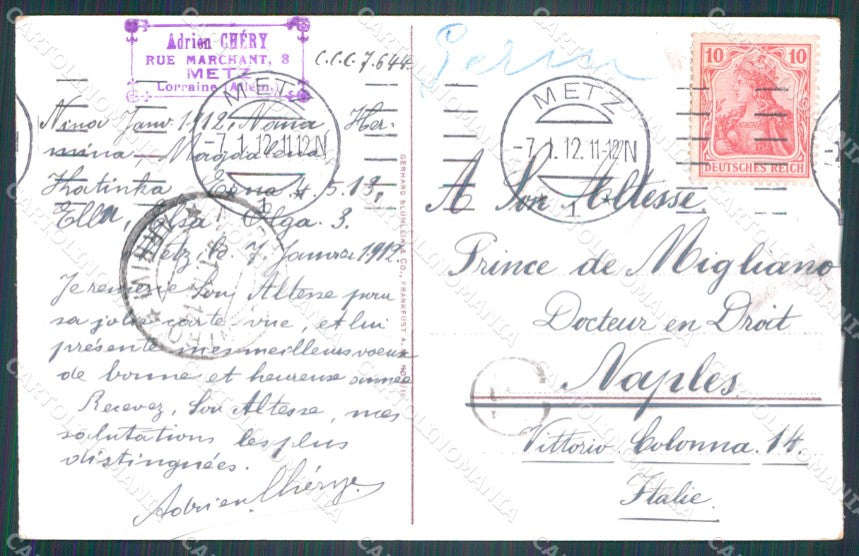 Adrien CHÉRY
RUE MARCHANT, 8
METZ
Lorraine (Allem.)
C.C.C 7.644
METZ
-7.1.12.11-12N
1
METZ
-7.1.12.11-12N
1
10 10
DEUTSCHES REICH
Ninor Janv 1912, Noma Her-
mina Magdalena,
Katinka Erna, 4.5.13,
Ella, Elsa Olga 3.
Metz le 7 Janvier 1912.
Je remercie Son Altesse pour
sa jolie carte-vue, et lui
présente mes meilleurs voeux
de bonne et heureuse année
Recevez, Son Altesse, mes
salutations les plus
distinguées.
Adrien Chéry
GERHARD BLÜMLEIN & CO., FRANKFURT A. M.
A Son Altesse
Prince de Migliano
Docteur en Droit
Naples
Vittorio Colonna. 14.
Italie.
CARTOLINOMANIA